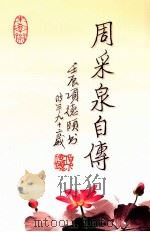 周采泉自傳
壬辰項德頤书
时年九十六歲